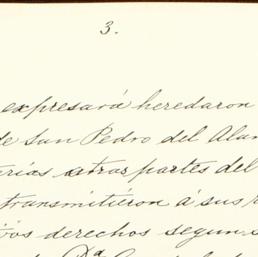 3.
expresará heredaron
de San Pedro del Alam
otras partes del
transmitiéron á sus
derechos segun
Da